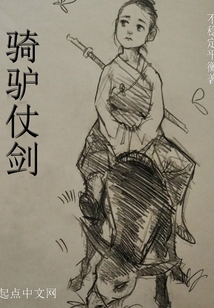 骑驴仗剑
起点中文网